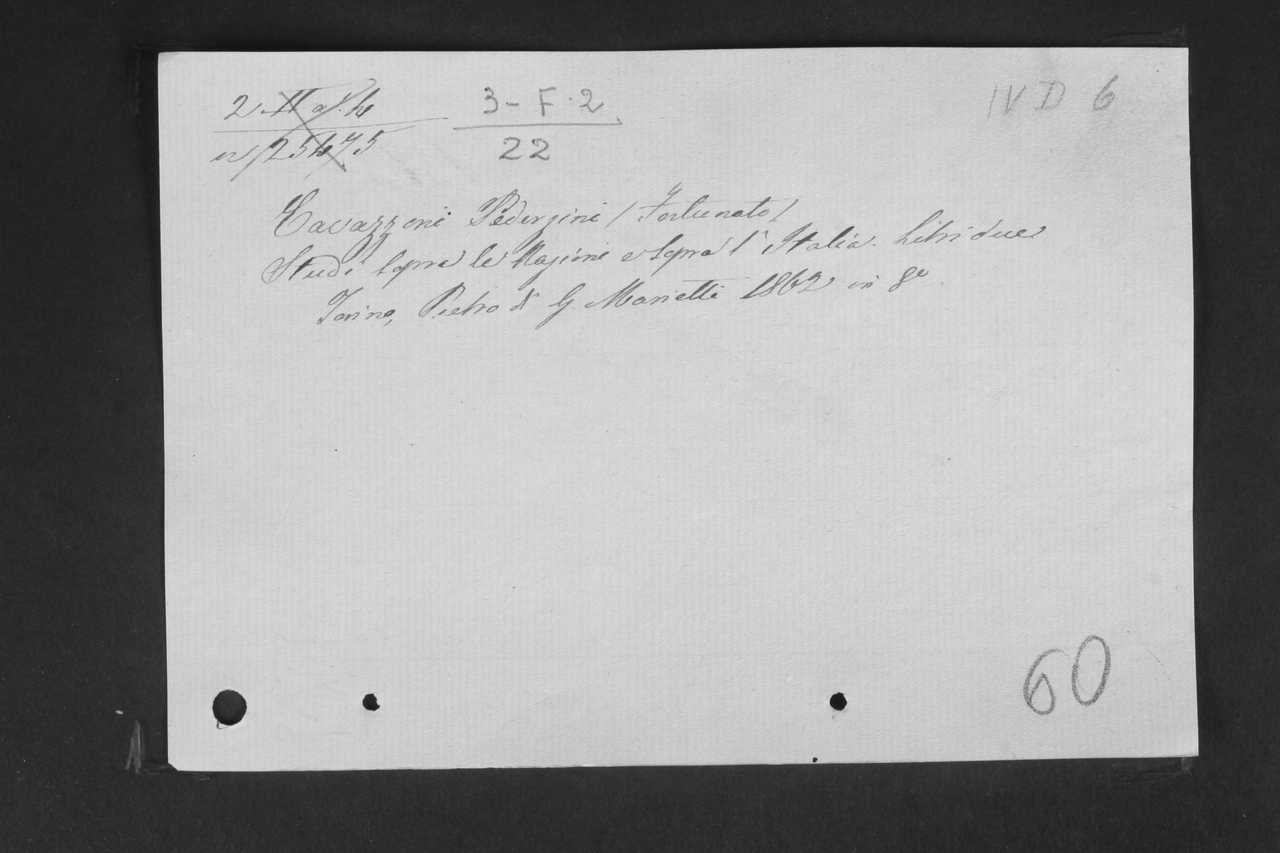 3-F.2
22
IV D 6
n/25475
Cavazzoni Pederzini (Fortunato)
Studi sopra le Nazioni e sopra l'Italia. Libri due
Torino, Pietro di G. Marietti 1862 in 8º
60